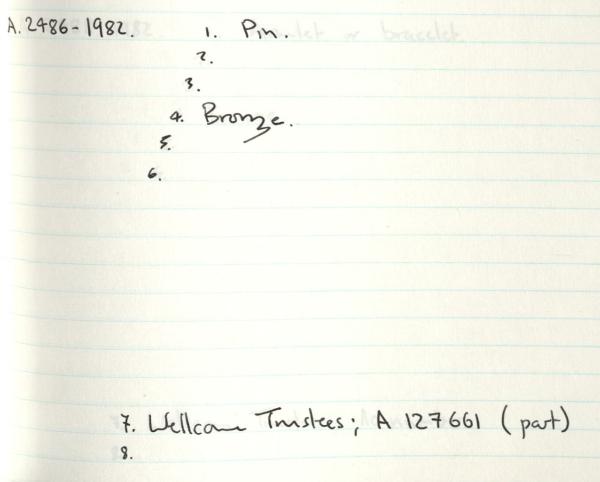 A. 2486-1982. 1. Pin.
2.
3.
4. Bronze.
5.
6.
7. Wellcome Trustees; A 127661 (part)
8.